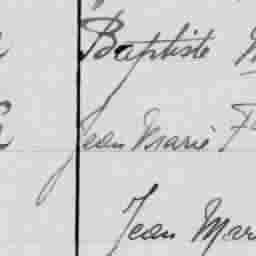 Baptiste
Jean Marie
Jean Mar